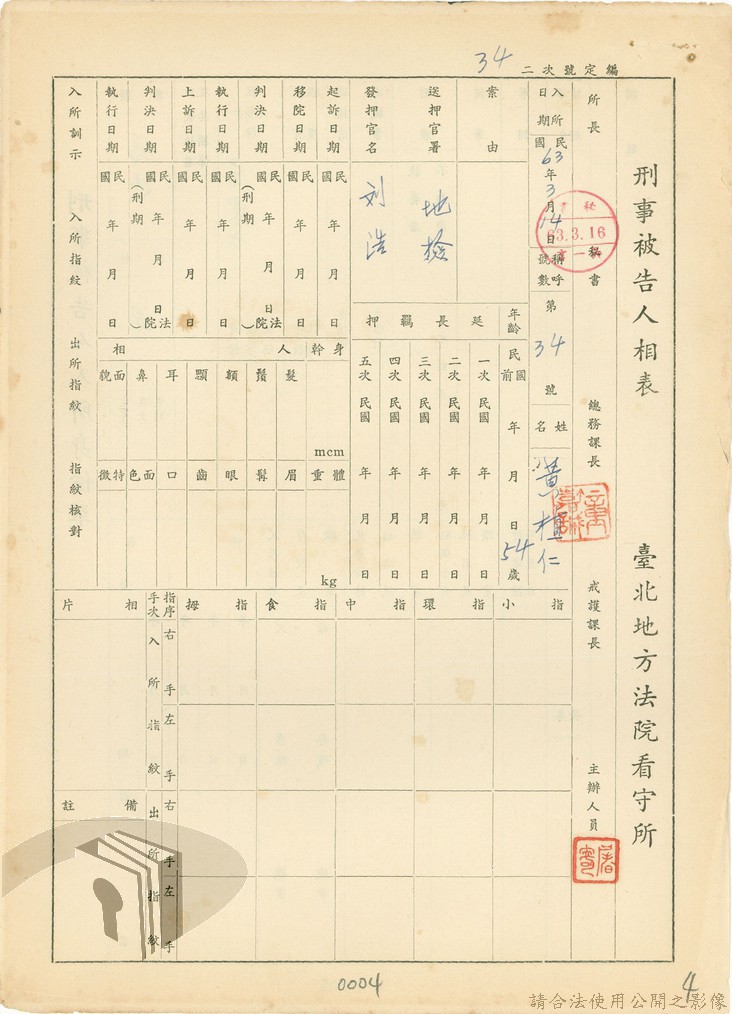 34
編定號次二
刑事被告人相表
臺北地方法院看守所
所長
秘書
總務課長
戒護課長
主辦人員
63.3.16
入所日期
民國63年3月14日
稱呼號數
第34號
姓名
黃 仁
案由
年齡
民國前 年 月 日
54歲
送押官署
地檢
發押官名
刘浩
延長羈押
一次 民國 年 月 日
二次 民國 年 月 日
三次 民國 年 月 日
四次 民國 年 月 日
五次 民國 年 月 日
起訴日期
民國 年 月 日
移院日期
民國 年 月 日
判決日期
民國 年 月 日
(刑期 法院)
執行日期
民國 年 月 日
上訴日期
民國 年 月 日
判決日期
民國 年 月 日
(刑期 法院)
執行日期
民國 年 月 日
身幹
mcm
體重
kg
人相
髮
鬚
額
顋
耳
鼻
面貌
眉
髯
眼
齒
口
面色
特徵
入所訓示
入所指紋
出所指紋
指紋核對
小指
環指
中指
食指
拇指
指序
手次
相片
右手
左手
入所指紋
右手
左手
出所指紋
備註
0004
4
請合法使用公開之影像